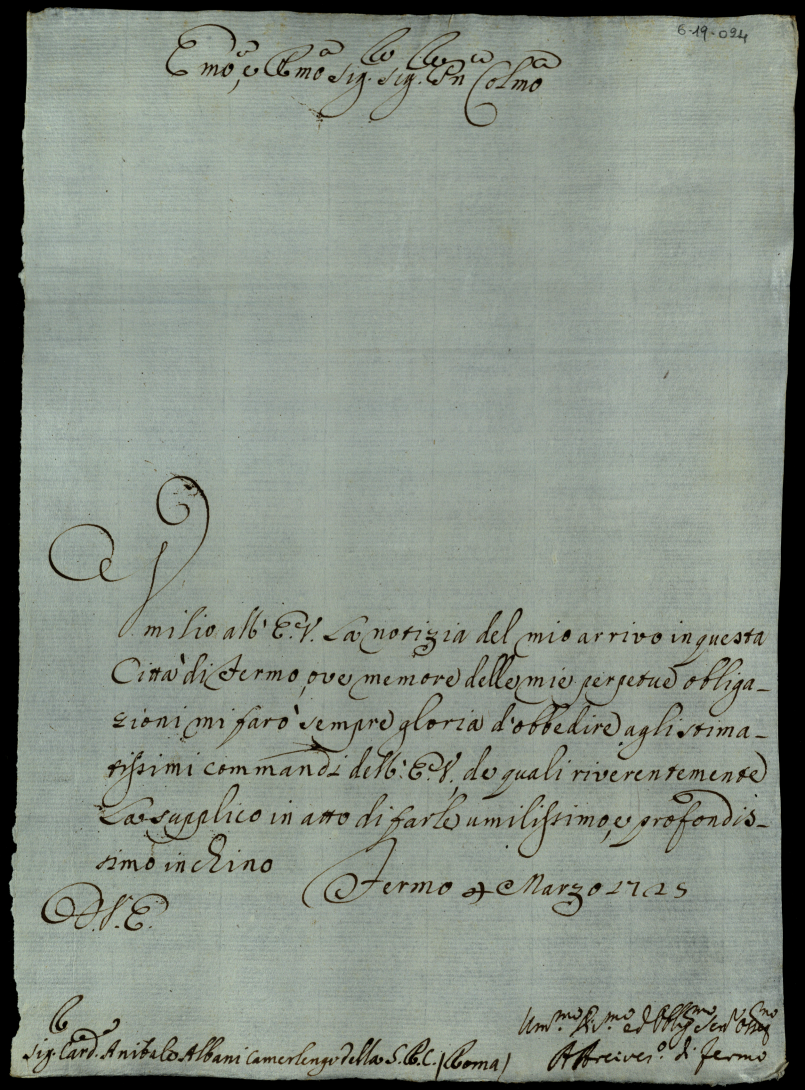 6-19-024
Emo, e Rmo Sig. Sig. Pne Colmo
Umilio all' E.V. la notizia del mio arrivo in questa
Città di Fermo, ove memore delle mie perpetue obliga-
zioni mi farò sempre gloria d'obbedire agli stima-
tissimi commandi dell' E.V, de quali riverentemente
La supplico in atto di farle umilissimo, e profondis-
simo inchino
Fermo 4 Marzo 1725
D.V.E.
Ummo Dismo ed Obligmo Serv
Sig. Card. Anibale Albani Camerlengo della S.R.C. (Roma)
Arcives.o di Fermo